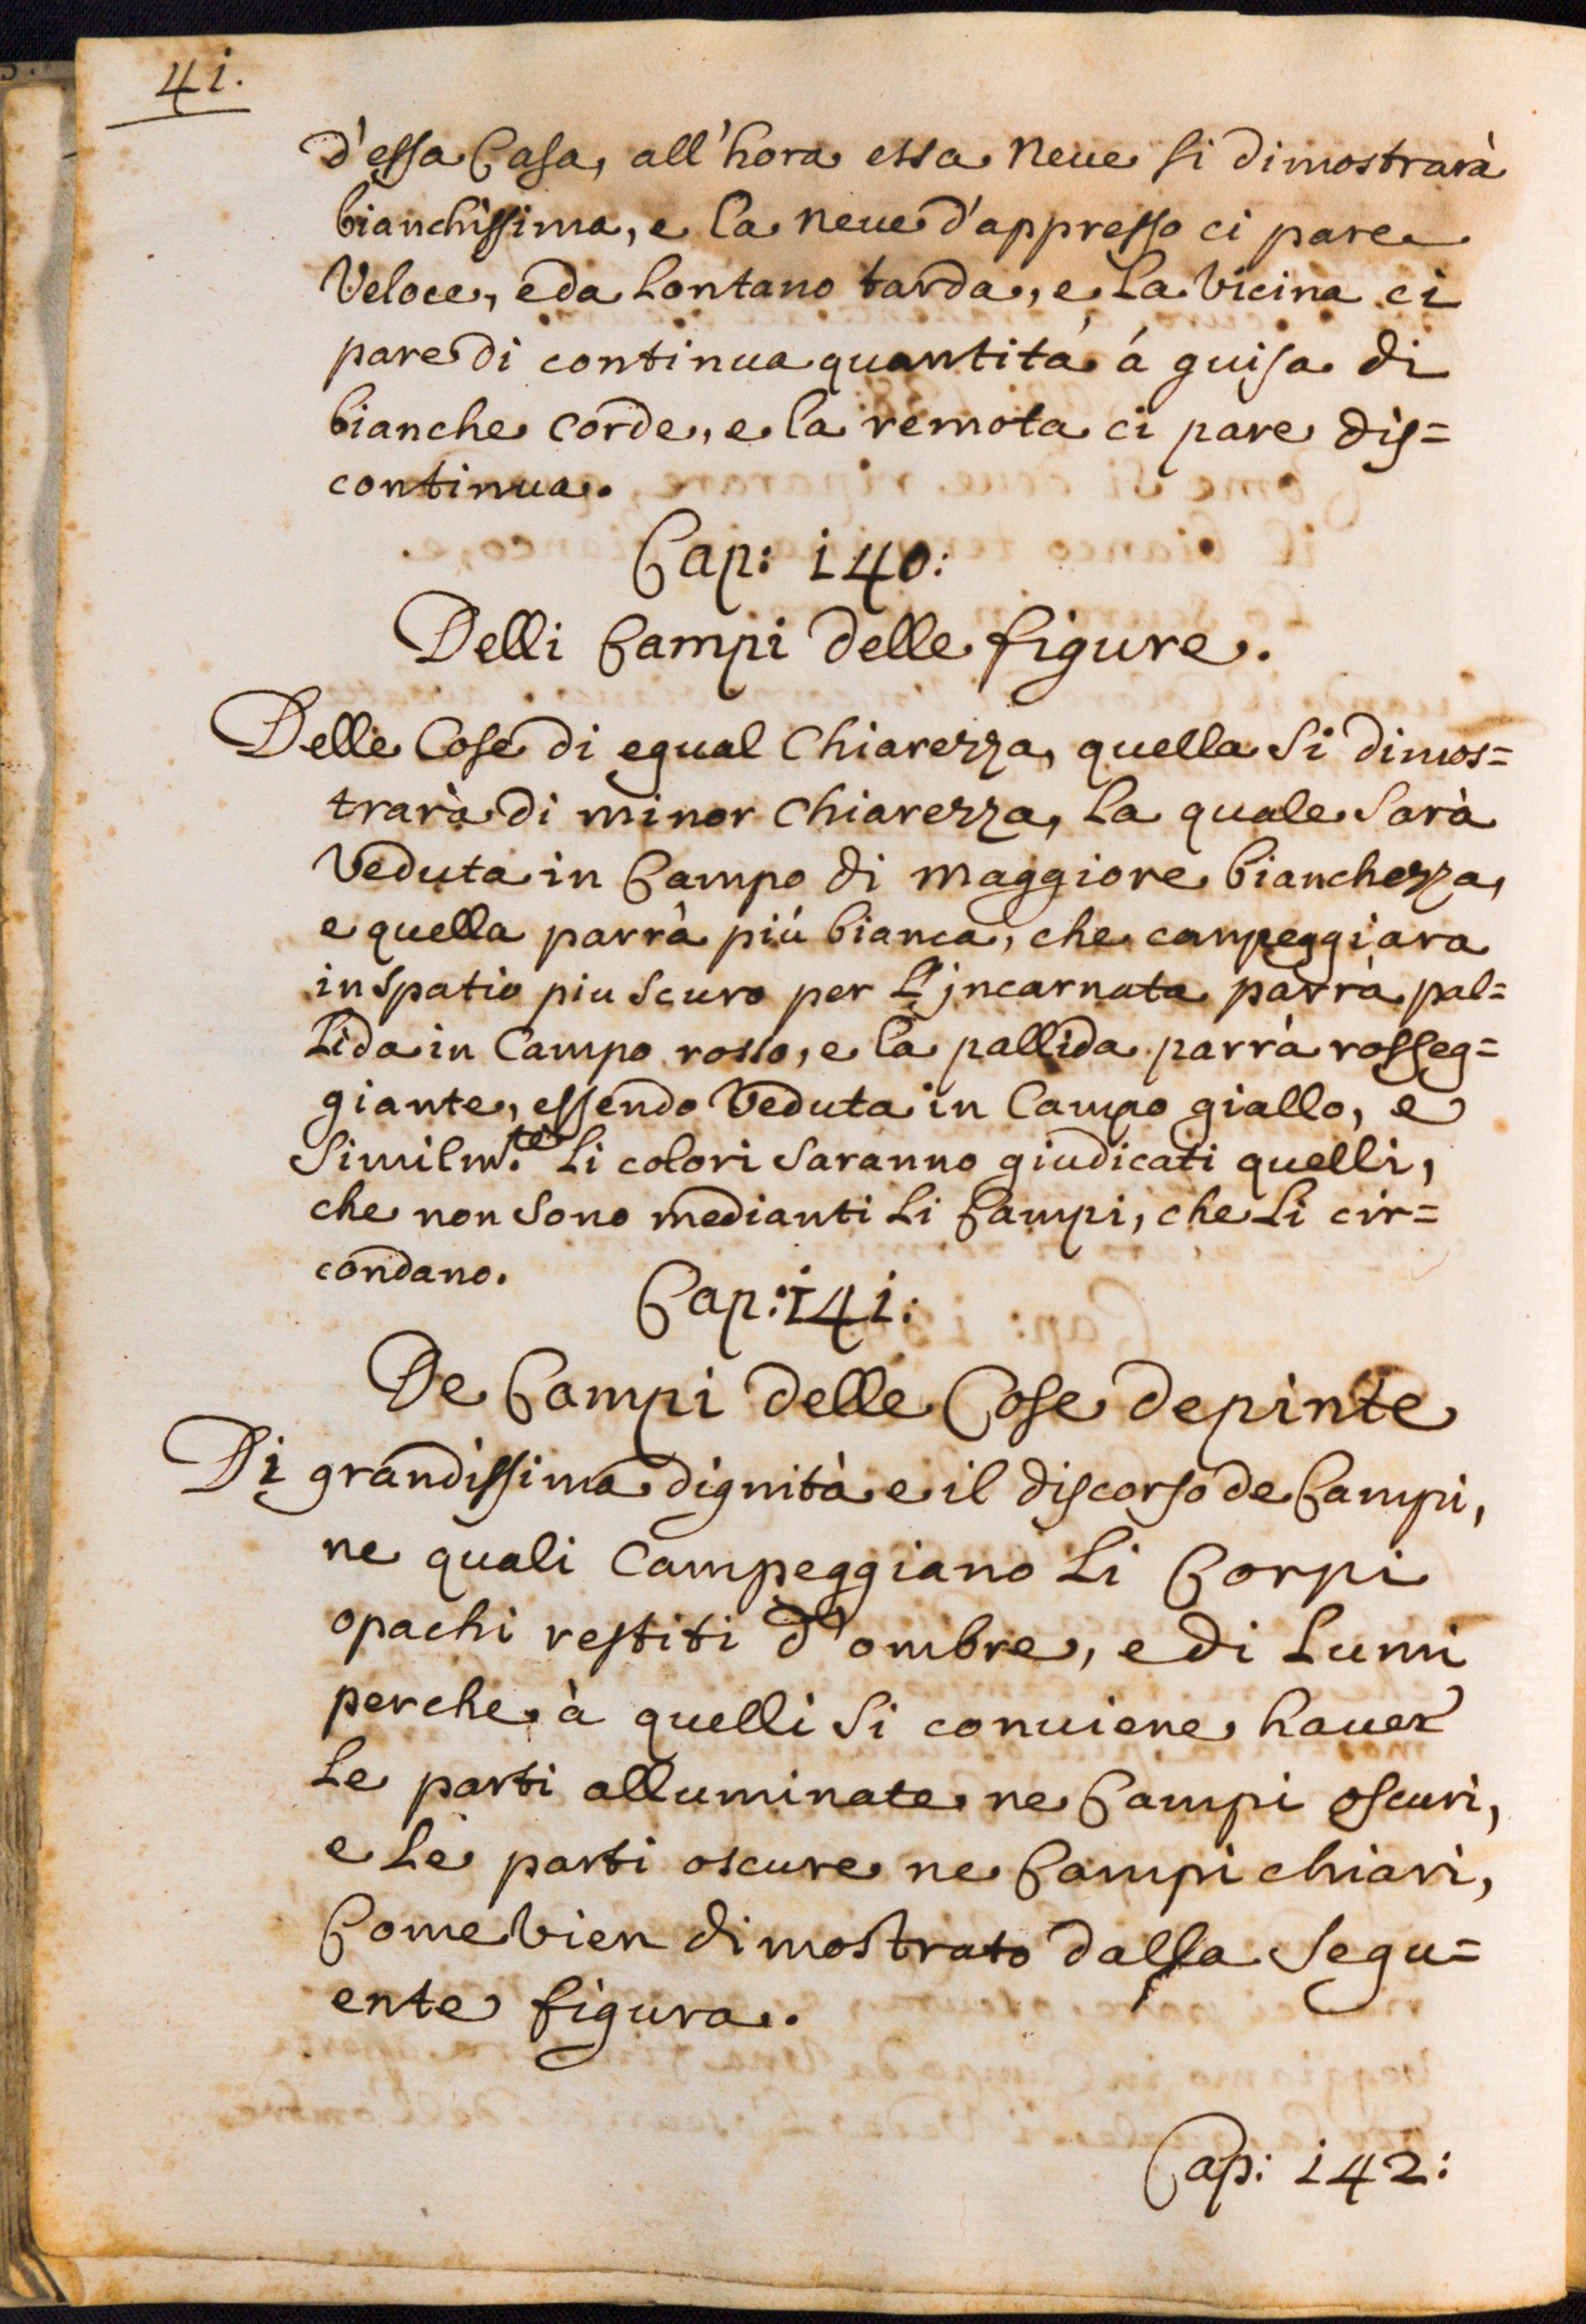 41.
d'essa Casa, all'hora essa neue si dimostrarà
bianchissima, e la neue d'appresso ci pare
Veloce, e da Lontano tarda, e La Vicina ci
pare di continua quantitá á guisa di
bianche corde, e la remota ci pare dis=
continua.
Cap: 140:
Delli Campi delle figure.
Delle Cose di egual Chiarezza, quella si dimos=
trarà di minor Chiarezza, La quale Sarà
Veduta in Campo di maggiore bianchezza,
e quella parrà piú bianca, che campeggiara
in Spatio piu Scuro per L'jncarnata parrà pal=
Lida in Campo rosso, e la pallida parrà rosseg=
giante, essendo Veduta in Campo giallo, e
Similm.te Li colori Saranno giudicati quelli,
che non Sono medianti Li Campi, che Li cir=
condano.
Cap: 141:
De Campi delle Cose depinte
Di grandissima dignità e il discorso de Campi,
ne quali Campeggiano Li Corpi
opachi vestiti d'ombre, e di Lumi
perche à quelli Si conuiene hauer
Le parti alluminate ne Campi oscuri,
e Le parti oscure ne Campi chiari,
Come Vien dimostrato dalla Segu=
ente figura.
Cap: 142: